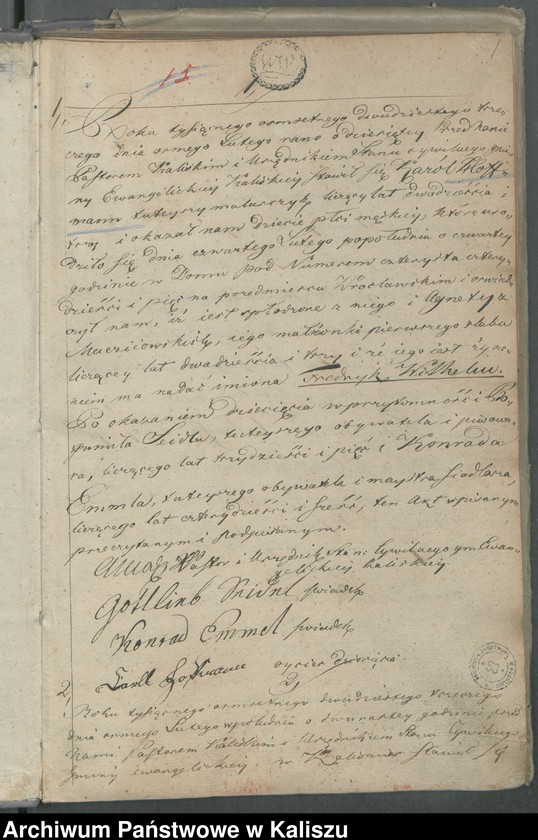 15
1
1
1. Roku tysiącznego ośmsetnego dwudziestego trze-
ciego dnia osmego Lutego rano o dziesiątej Przed Nami
Pastorem Kaliskim i Urzędnikiem Stanu Cywilnego gmi-
ny Ewangelickiej Kaliskiej stawił się Karól Hoff-
mann tuteyszy malarczyk, liczący lat dwadzieścia i
trzy i okazał nam dziecię płci męzkiej, które uro-
dziło się dnia czwartego Lutego popołudniu o czwartey
godzinie w Domu pod Numerem czterysta cztery-
dzieści i pięć na przedmieściu Wrocławskim i oświad-
czył nam, iż jest spłodzone z niego i Agnety z
jego małżonki pierwszego ślubu
liczącey lat dwadzieścia i trzy i że jego jest życze-
niem ma nadać imiona Fredryk Wilhelm.
Po okazaniem dziecięcia w przytomności Bo-
gumiła Seidla, tuteyszego obywatela i piwowa-
ra, liczącego lat trzydzieści i pięć i Konrada
Emmla, tuteyszego obywatela i maystra siodlarza,
liczącego lat czterdzieści i sześć, ten Akt spisanym
przeczytanym i podpisanym.
Pastor i Urzędnik stanu Cywilnego gm Ewan-
gelickiej Kaliskiej
Gottlieb Seidel świadek
Konrad Emmel świadek
Carll Hoffmann oyciec dziecięcia.
2,
2, Roku tysiącznego ośmsetnego dwudziestego trzeciego
dnia osmego Lutego w południu o dwunastey godzinie przed
Nami Pastorem Kaliskim i Urzędnikiem Stanu Cywilnego
Gminy Ewangelickiej w Stawił się
Archiwum Państwowe w Kaliszu